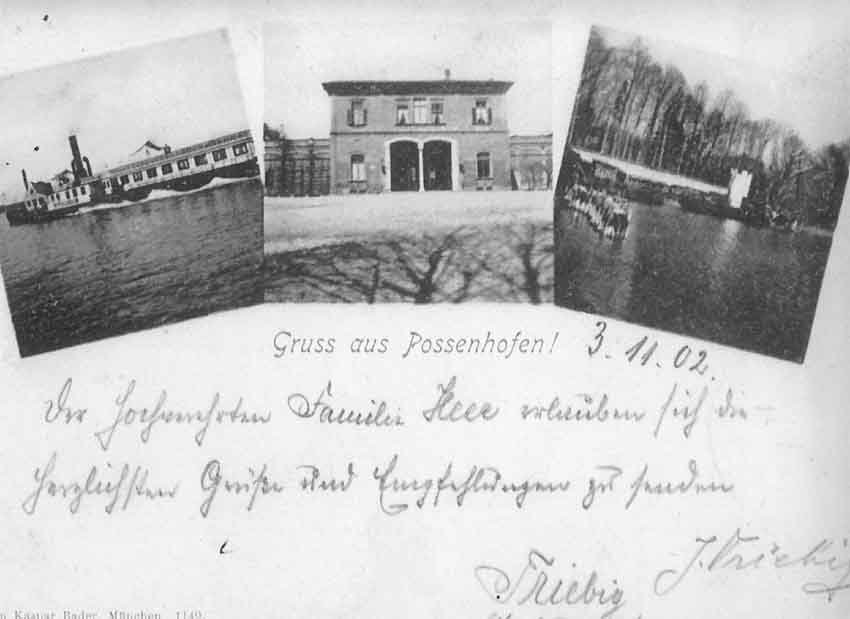 Gruss aus Possenhofen! 3.11.02.
Der hochverehrten Familie Heer erlauben sich die
herzlichsten Grüße und Empfehlungen zu senden
J. Triebig
Triebig
n Kaspar Bader, München. 1149.